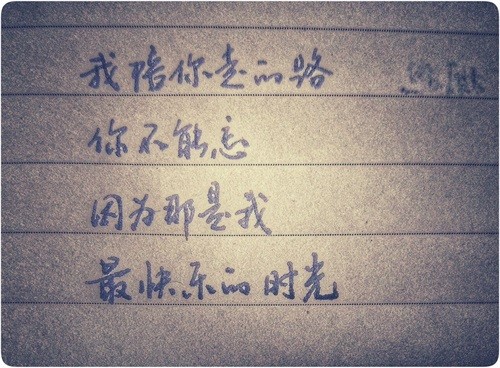 我陪你走的路
你不能忘
因为那是我
最快乐的时光